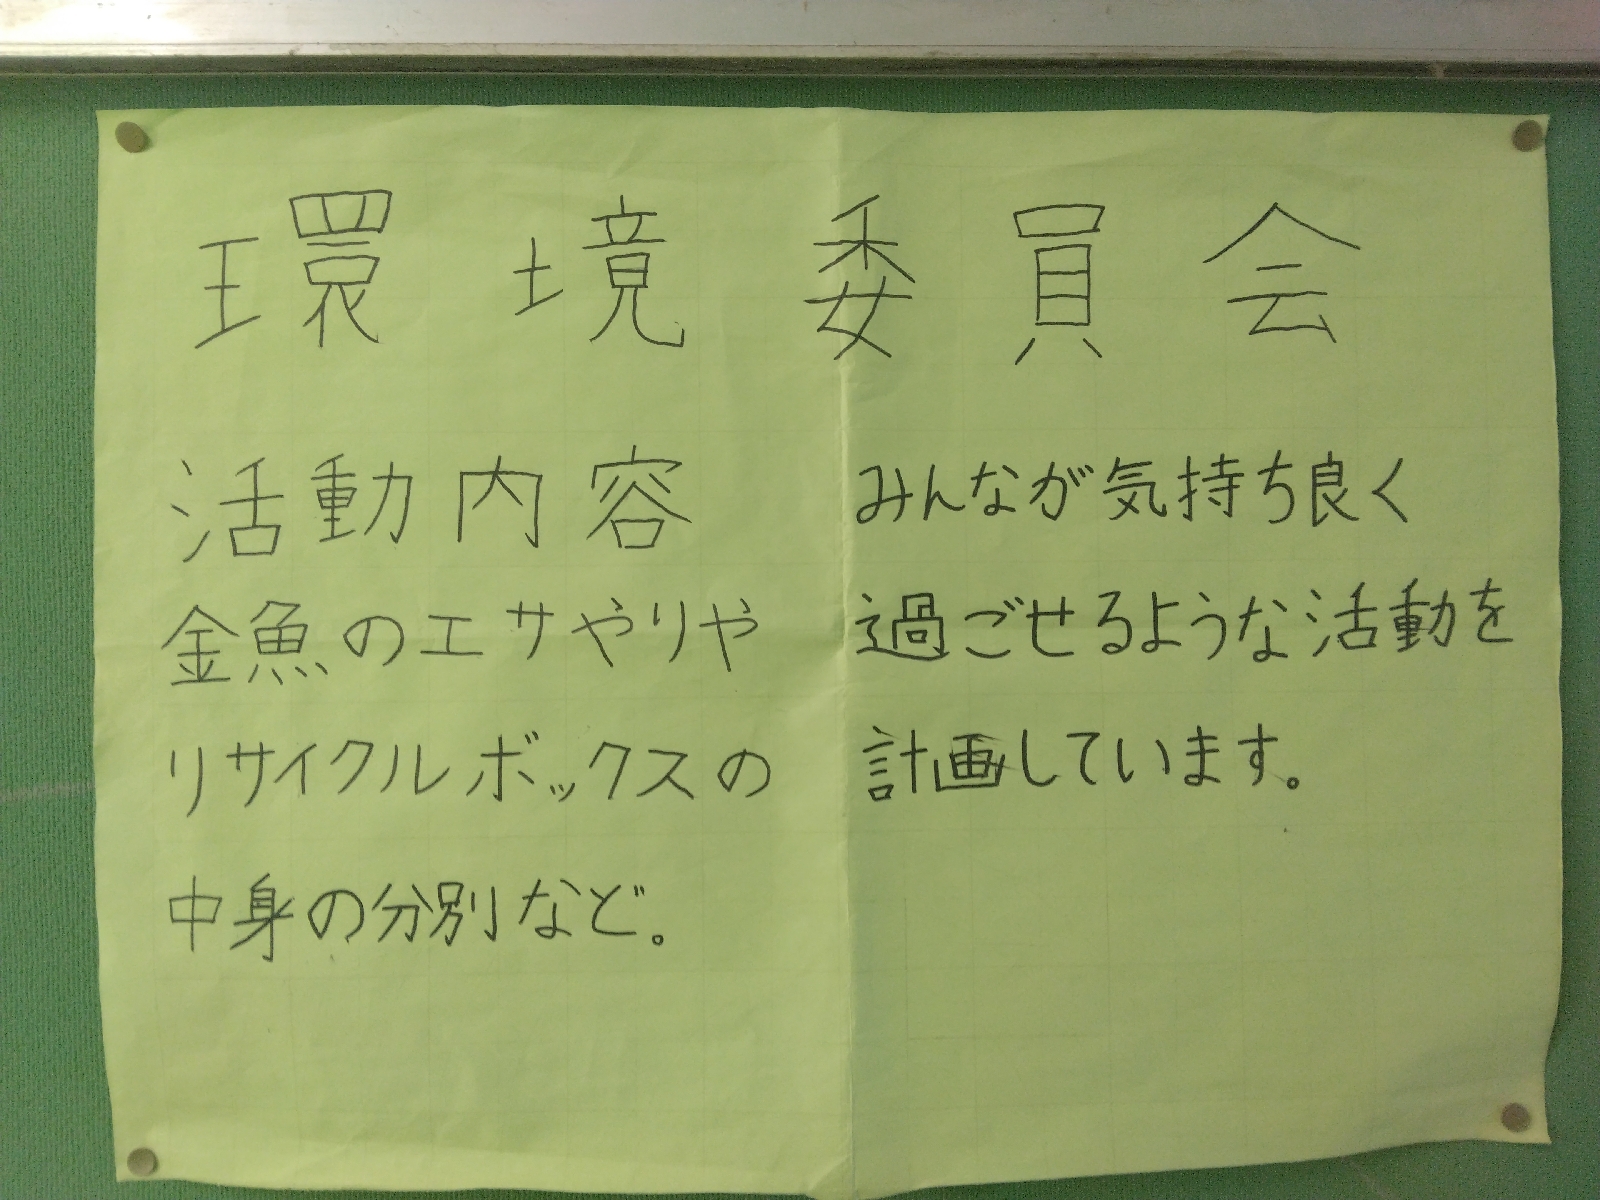 環境委員会
活動内容
金魚のエサやりや
リサイクルボックスの
中身の分別など。
みんなが気持ち良く
過ごせるような活動を
計画しています。